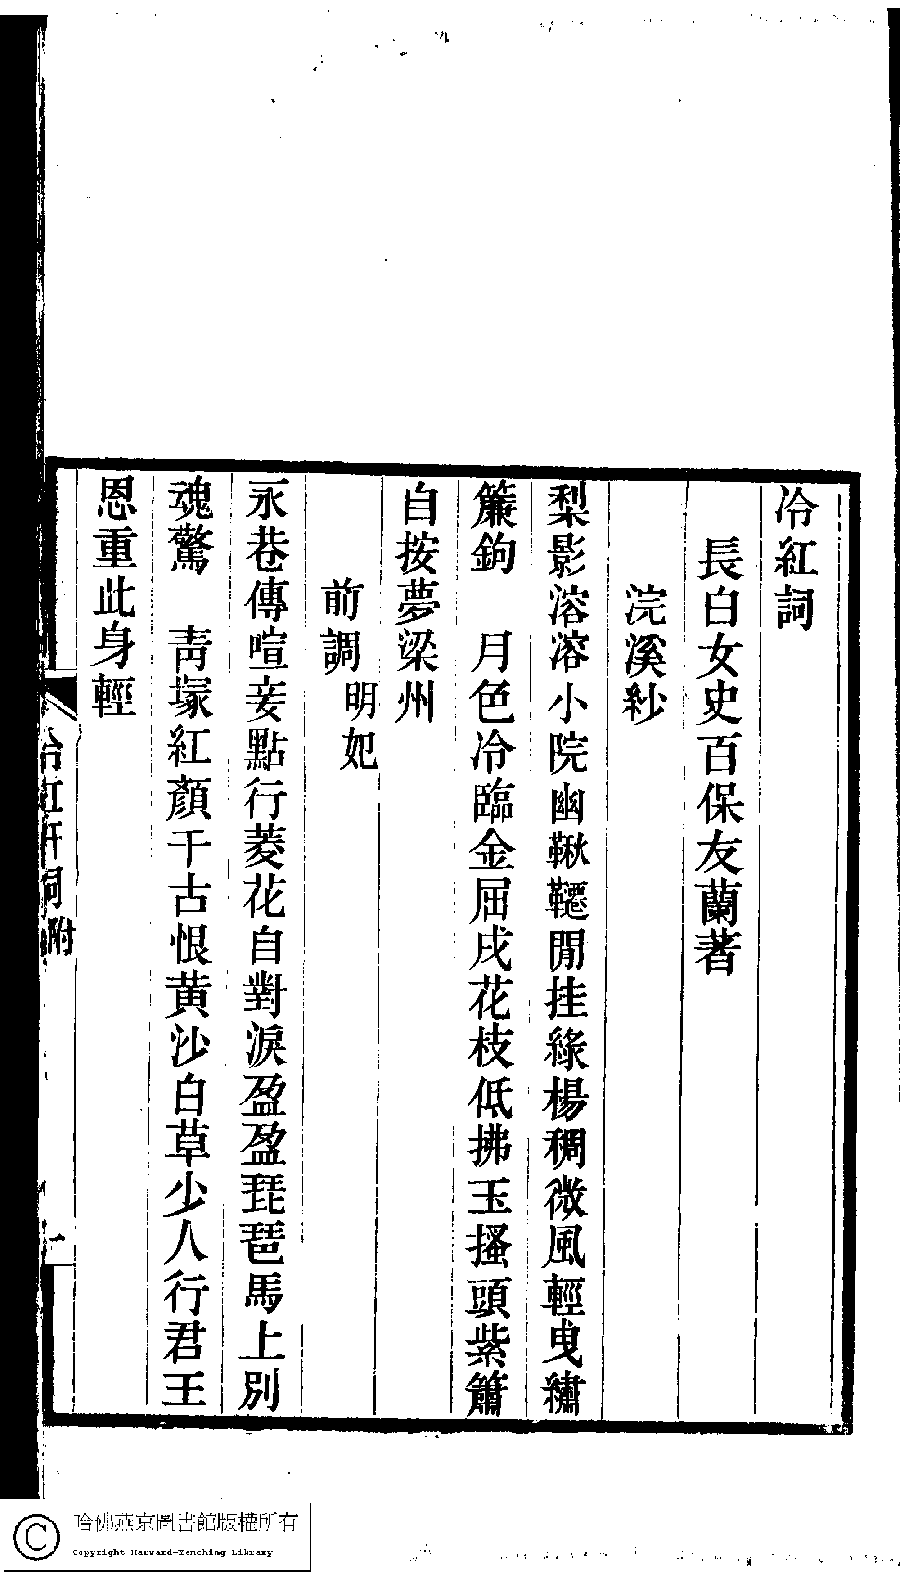 冷紅詞
長白女史百保友蘭著
浣溪紗
梨影溶溶小院幽鞦韆閒挂綠楊稠微風輕曳繡
簾鉤　月色冷臨金屈戌花枝低拂玉搔頭紫簫
自按夢梁州
前調明妃
永巷傳喧妾點行菱花自對淚盈盈琵琶馬上別
魂驚　靑塚紅顏千古恨黃沙白草少人行君王
恩重此身輕
冷紅軒詞附
一
哈佛燕京圖書館版權所有
Copyright Harvard-Yenching Library